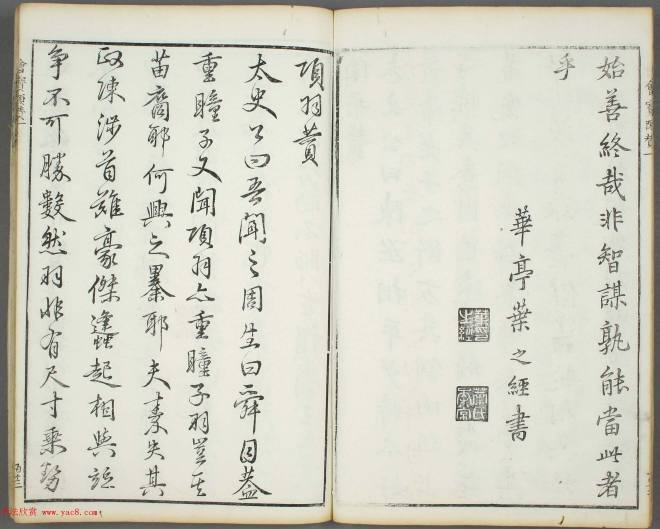 始善終哉非智謀孰能當此者
乎
華亭葉之經書
項羽贊
太史公曰吾聞之周生曰舜目蓋
重瞳子又聞項羽亦重瞳子羽豈其
苗裔耶何興之暴耶夫秦失其
政陳涉首難豪傑蠭起相與竝
争不可勝數然羽非有尺寸乘勢
www.yac8.com